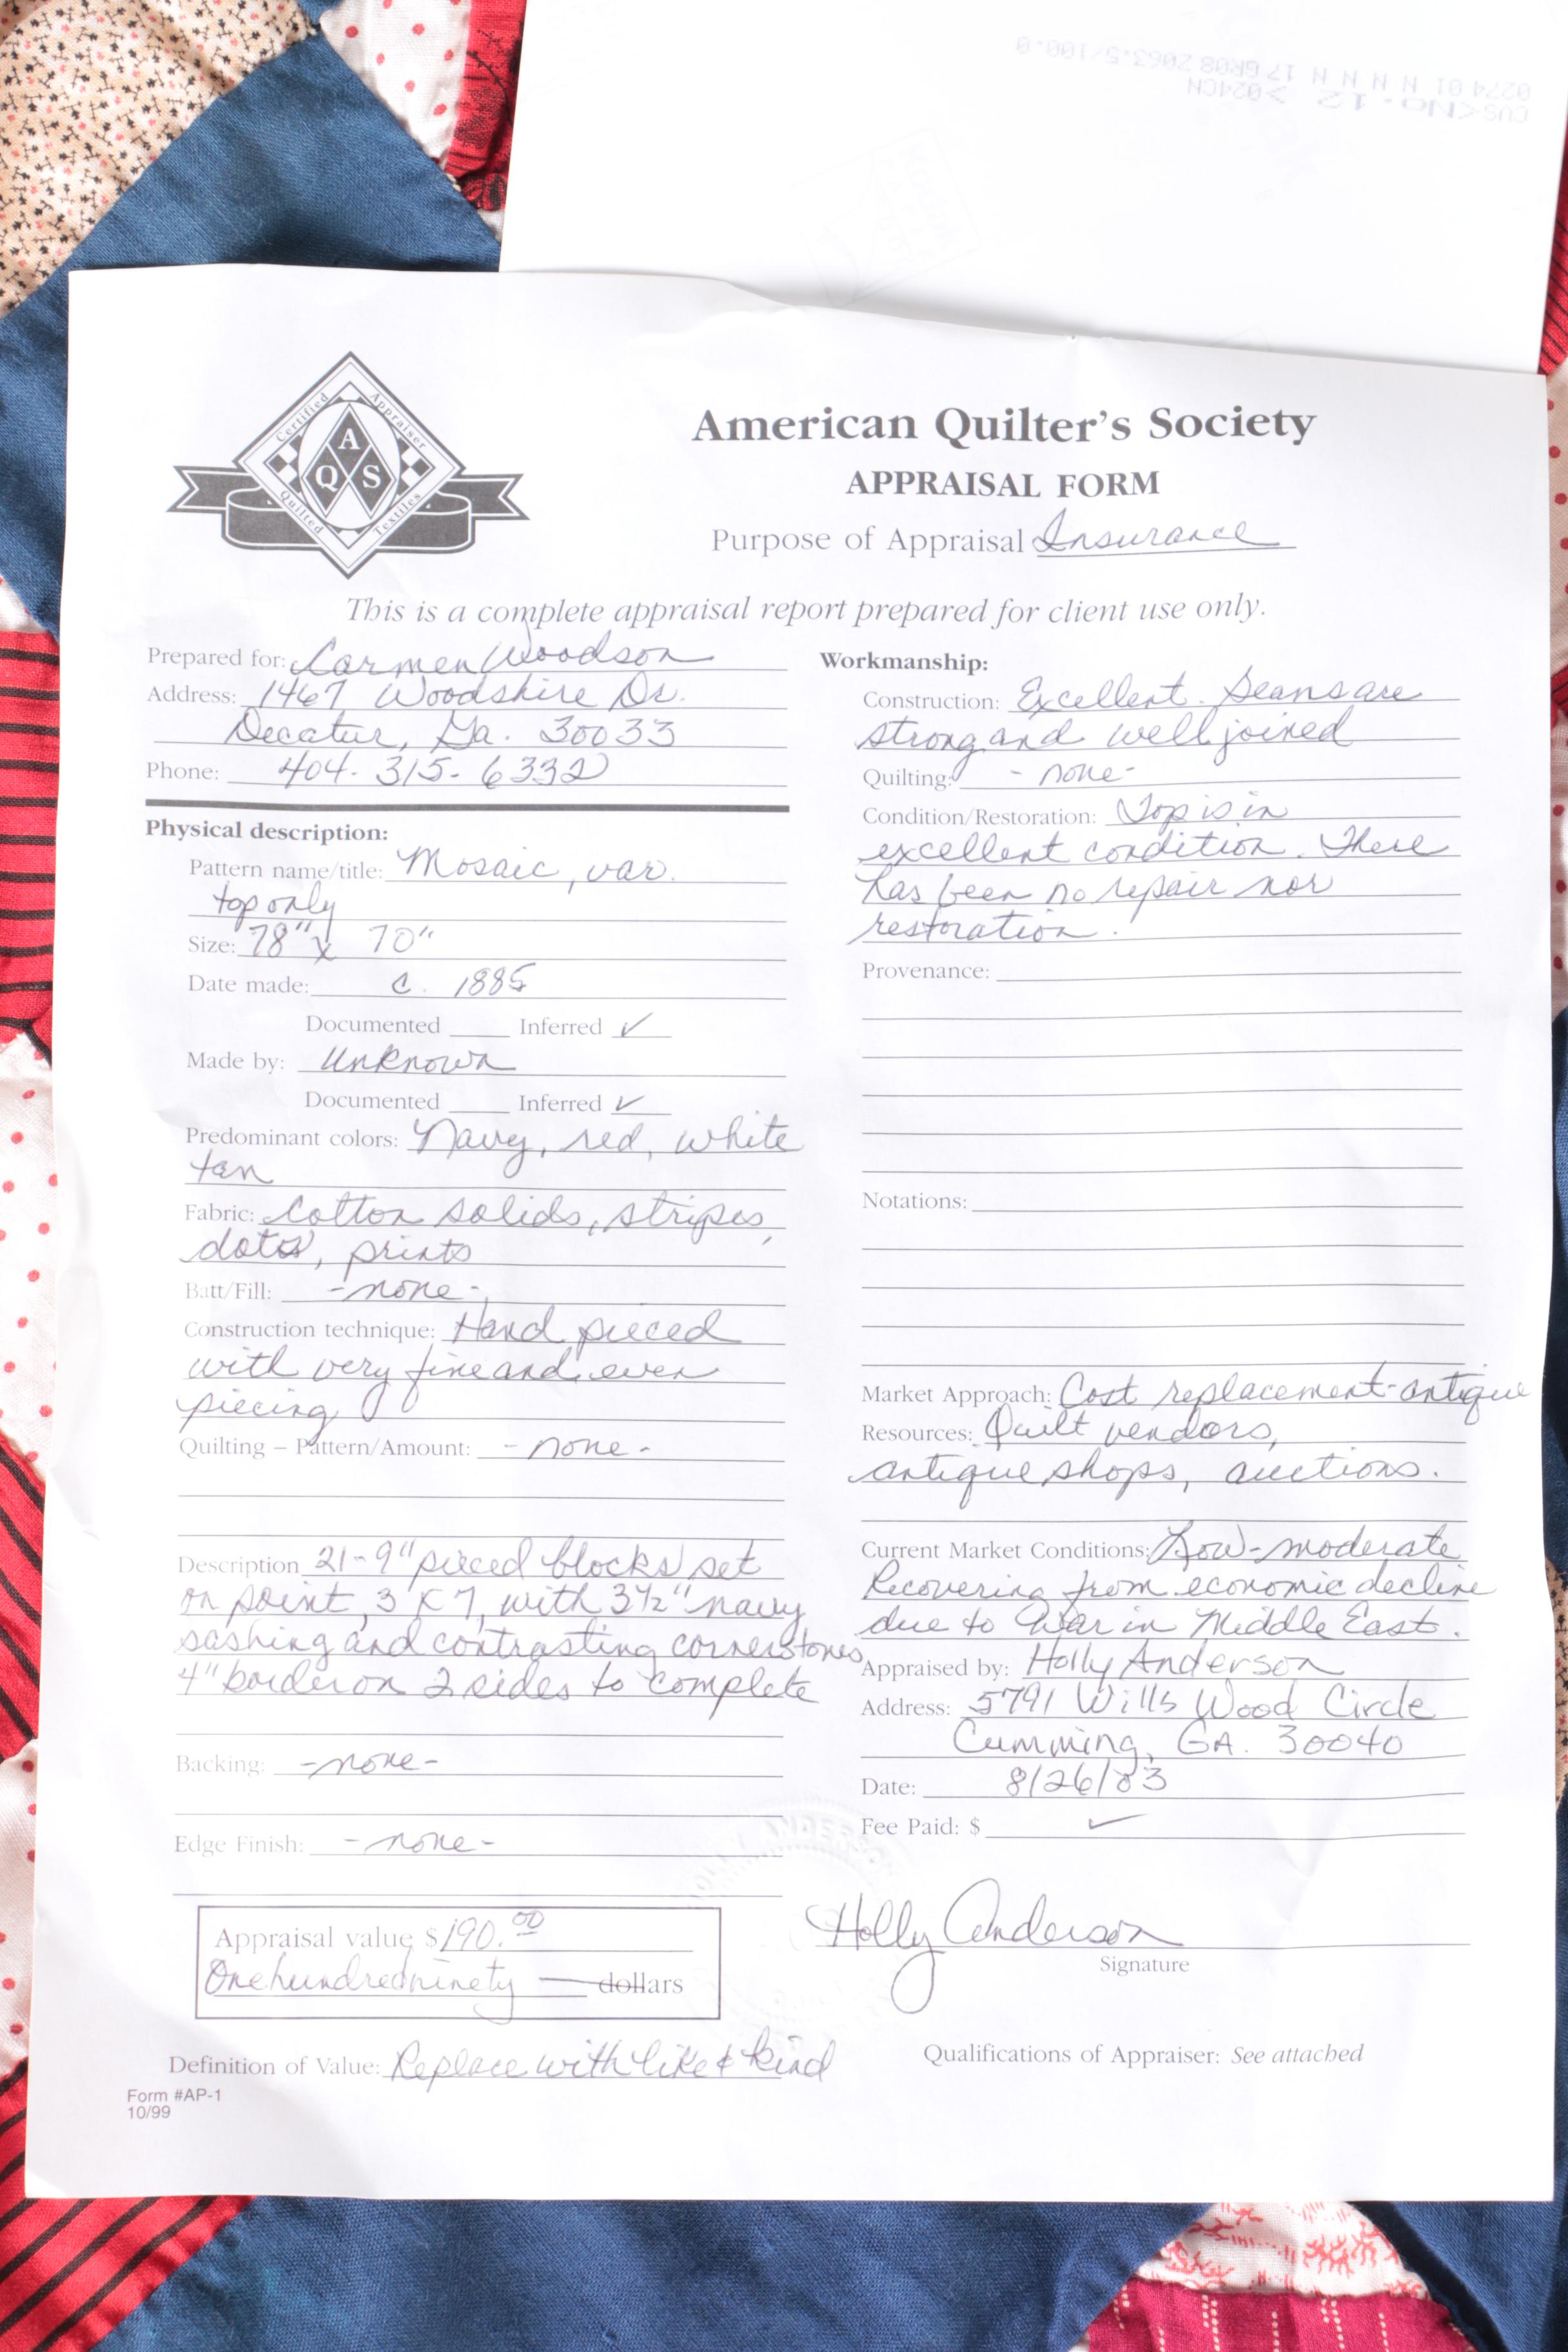 0274 01 N N N N 17 GR08 2063.5/100.0
CUS<No. 12 >024CN
Certified Appraiser
A
Q S
Quilted Textiles
American Quilter's Society
APPRAISAL FORM
Purpose of Appraisal Insurance
This is a complete appraisal report prepared for client use only.
Prepared for: Carmen Woodson
Address: 1467 Woodshire Dr.
Decatur, Ga. 30033
Phone: 404-315-6332
Physical description:
Pattern name/title: Mosaic, var.
top only
Size: 78" x 70"
Date made: c. 1885
Documented ____ Inferred ✓
Made by: Unknown
Documented ____ Inferred ✓
Predominant colors: Navy, red, white
tan
Fabric: Cotton solids, stripes,
dots, prints
Batt/Fill: -none-
Construction technique: Hand pieced
with very fine and even
piecing
Quilting – Pattern/Amount: -none-
Description 21-9" pieced blocks set
on point, 3 x 7, with 3 1/2" navy
sashing and contrasting cornerstones
4" border on 2 sides to complete
Backing: -none-
Edge Finish: -none-
Appraisal value $190.00
One hundred ninety — dollars
Definition of Value: Replace with like & kind
Form #AP-1
10/99
Workmanship:
Construction: Excellent. Seams are
strong and well joined
Quilting: -none-
Condition/Restoration: Top is in
excellent condition. There
has been no repair nor
restoration.
Provenance:
Notations:
Market Approach: Cost replacement-antique
Resources: Quilt vendors,
antique shops, auctions.
Current Market Conditions: Low-moderate
Recovering from economic decline
due to War in Middle East.
Appraised by: Holly Anderson
Address: 5791 Wills Wood Circle
Cumming, GA. 30040
Date: 8/26/03
Fee Paid: $ ✓
ANDERSON
Holly Anderson
Signature
Qualifications of Appraiser: See attached